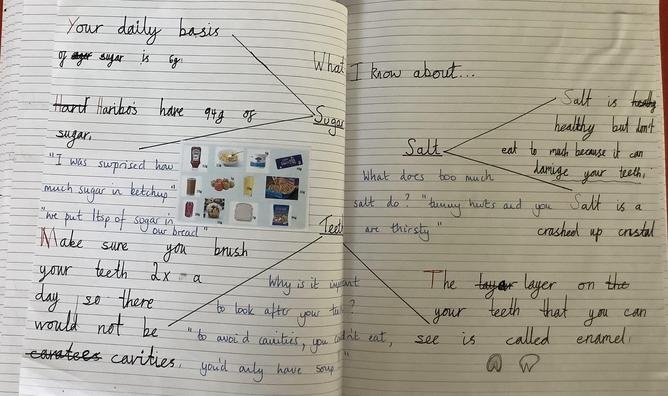 Your daily basis
of sugar is 6g.
What I know about...
Haribo's have 94g of
sugar.
Sugar
"I was surprised how
much sugar in ketchup"
"we put 1tsp of sugar in
our bread"
Make sure you brush
your teeth 2x a
day so there
would not be
caratees cavities.
Teeth
Why is it important
to look after your teeth?
"to avoid cavities, you couldn't eat,
you'd only have soup"
Salt
Salt is healthy
healthy but don't
eat to much because it can
damige your teeth.
What does too much
salt do? "tummy hurts and you
are thirsty"
Salt is a
crashed up crustal
The layer layer on the
your teeth that you can
see is called enamel.